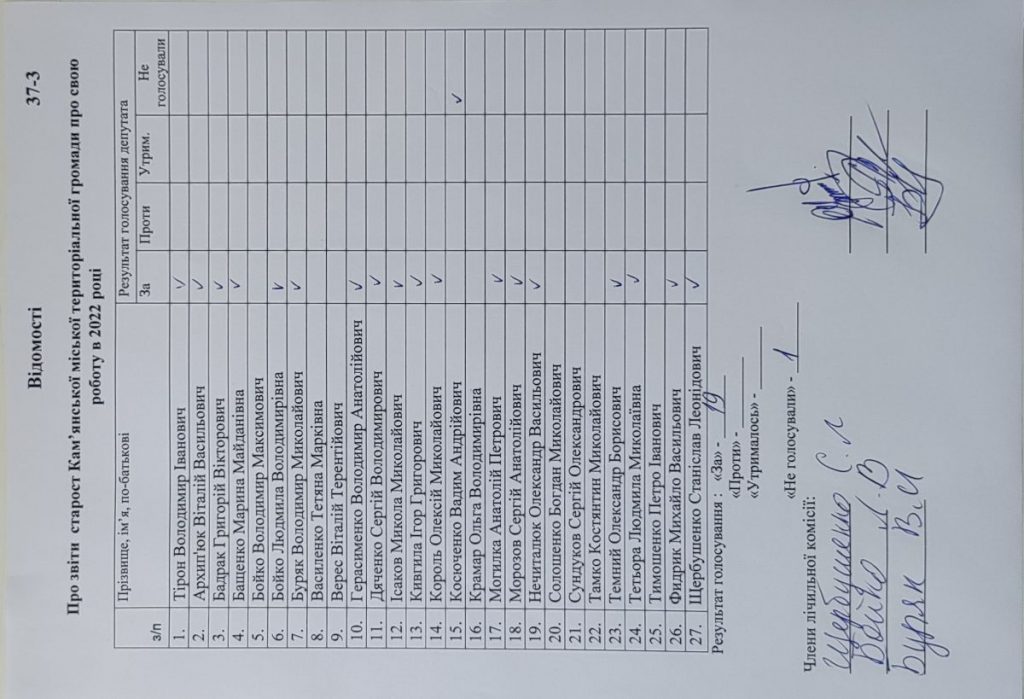 Відомості 37-3
Про звіти старост Кам’янської міської територіальної громади про свою
роботу в 2022 році
з/п Прізвище, ім’я, по-батькові Результат голосування депутата
За Проти Утрим. Не голосували
1. Тірон Володимир Іванович ✓
2. Архип'юк Віталій Васильович ✓
3. Бадрак Григорій Вікторович ✓
4. Бащенко Марина Майданівна ✓
5. Бойко Володимир Максимович
6. Бойко Людмила Володимирівна ✓
7. Буряк Володимир Миколайович ✓
8. Василенко Тетяна Марківна
9. Верес Віталій Терентійович
10. Герасименко Володимир Анатолійович ✓
11. Дяченко Сергій Володимирович ✓
12. Ісаков Микола Миколайович ✓
13. Киягила Ігор Григорович ✓
14. Король Олексій Миколайович ✓
15. Косюченко Вадим Андрійович ✓
16. Крамар Ольга Володимирівна
17. Могилка Анатолій Петрович ✓
18. Морозов Сергій Анатолійович ✓
19. Нечиталюк Олександр Васильович ✓
20. Солошенко Богдан Миколайович
21. Сундуков Сергій Олександрович
22. Тамко Костянтин Миколайович
23. Темний Олександр Борисович ✓
24. Тетьора Людмила Миколаївна ✓
25. Тимошенко Петро Іванович
26. Фидрик Михайло Васильович ✓
27. Щербушенко Станіслав Леонідович ✓
Результат голосування : «За» - 19
«Проти» -
«Утрималось» -
«Не голосували» - 1
Члени лічильної комісії:
Щербушенко С. Л
Бойко Л. В
Буряк В. М